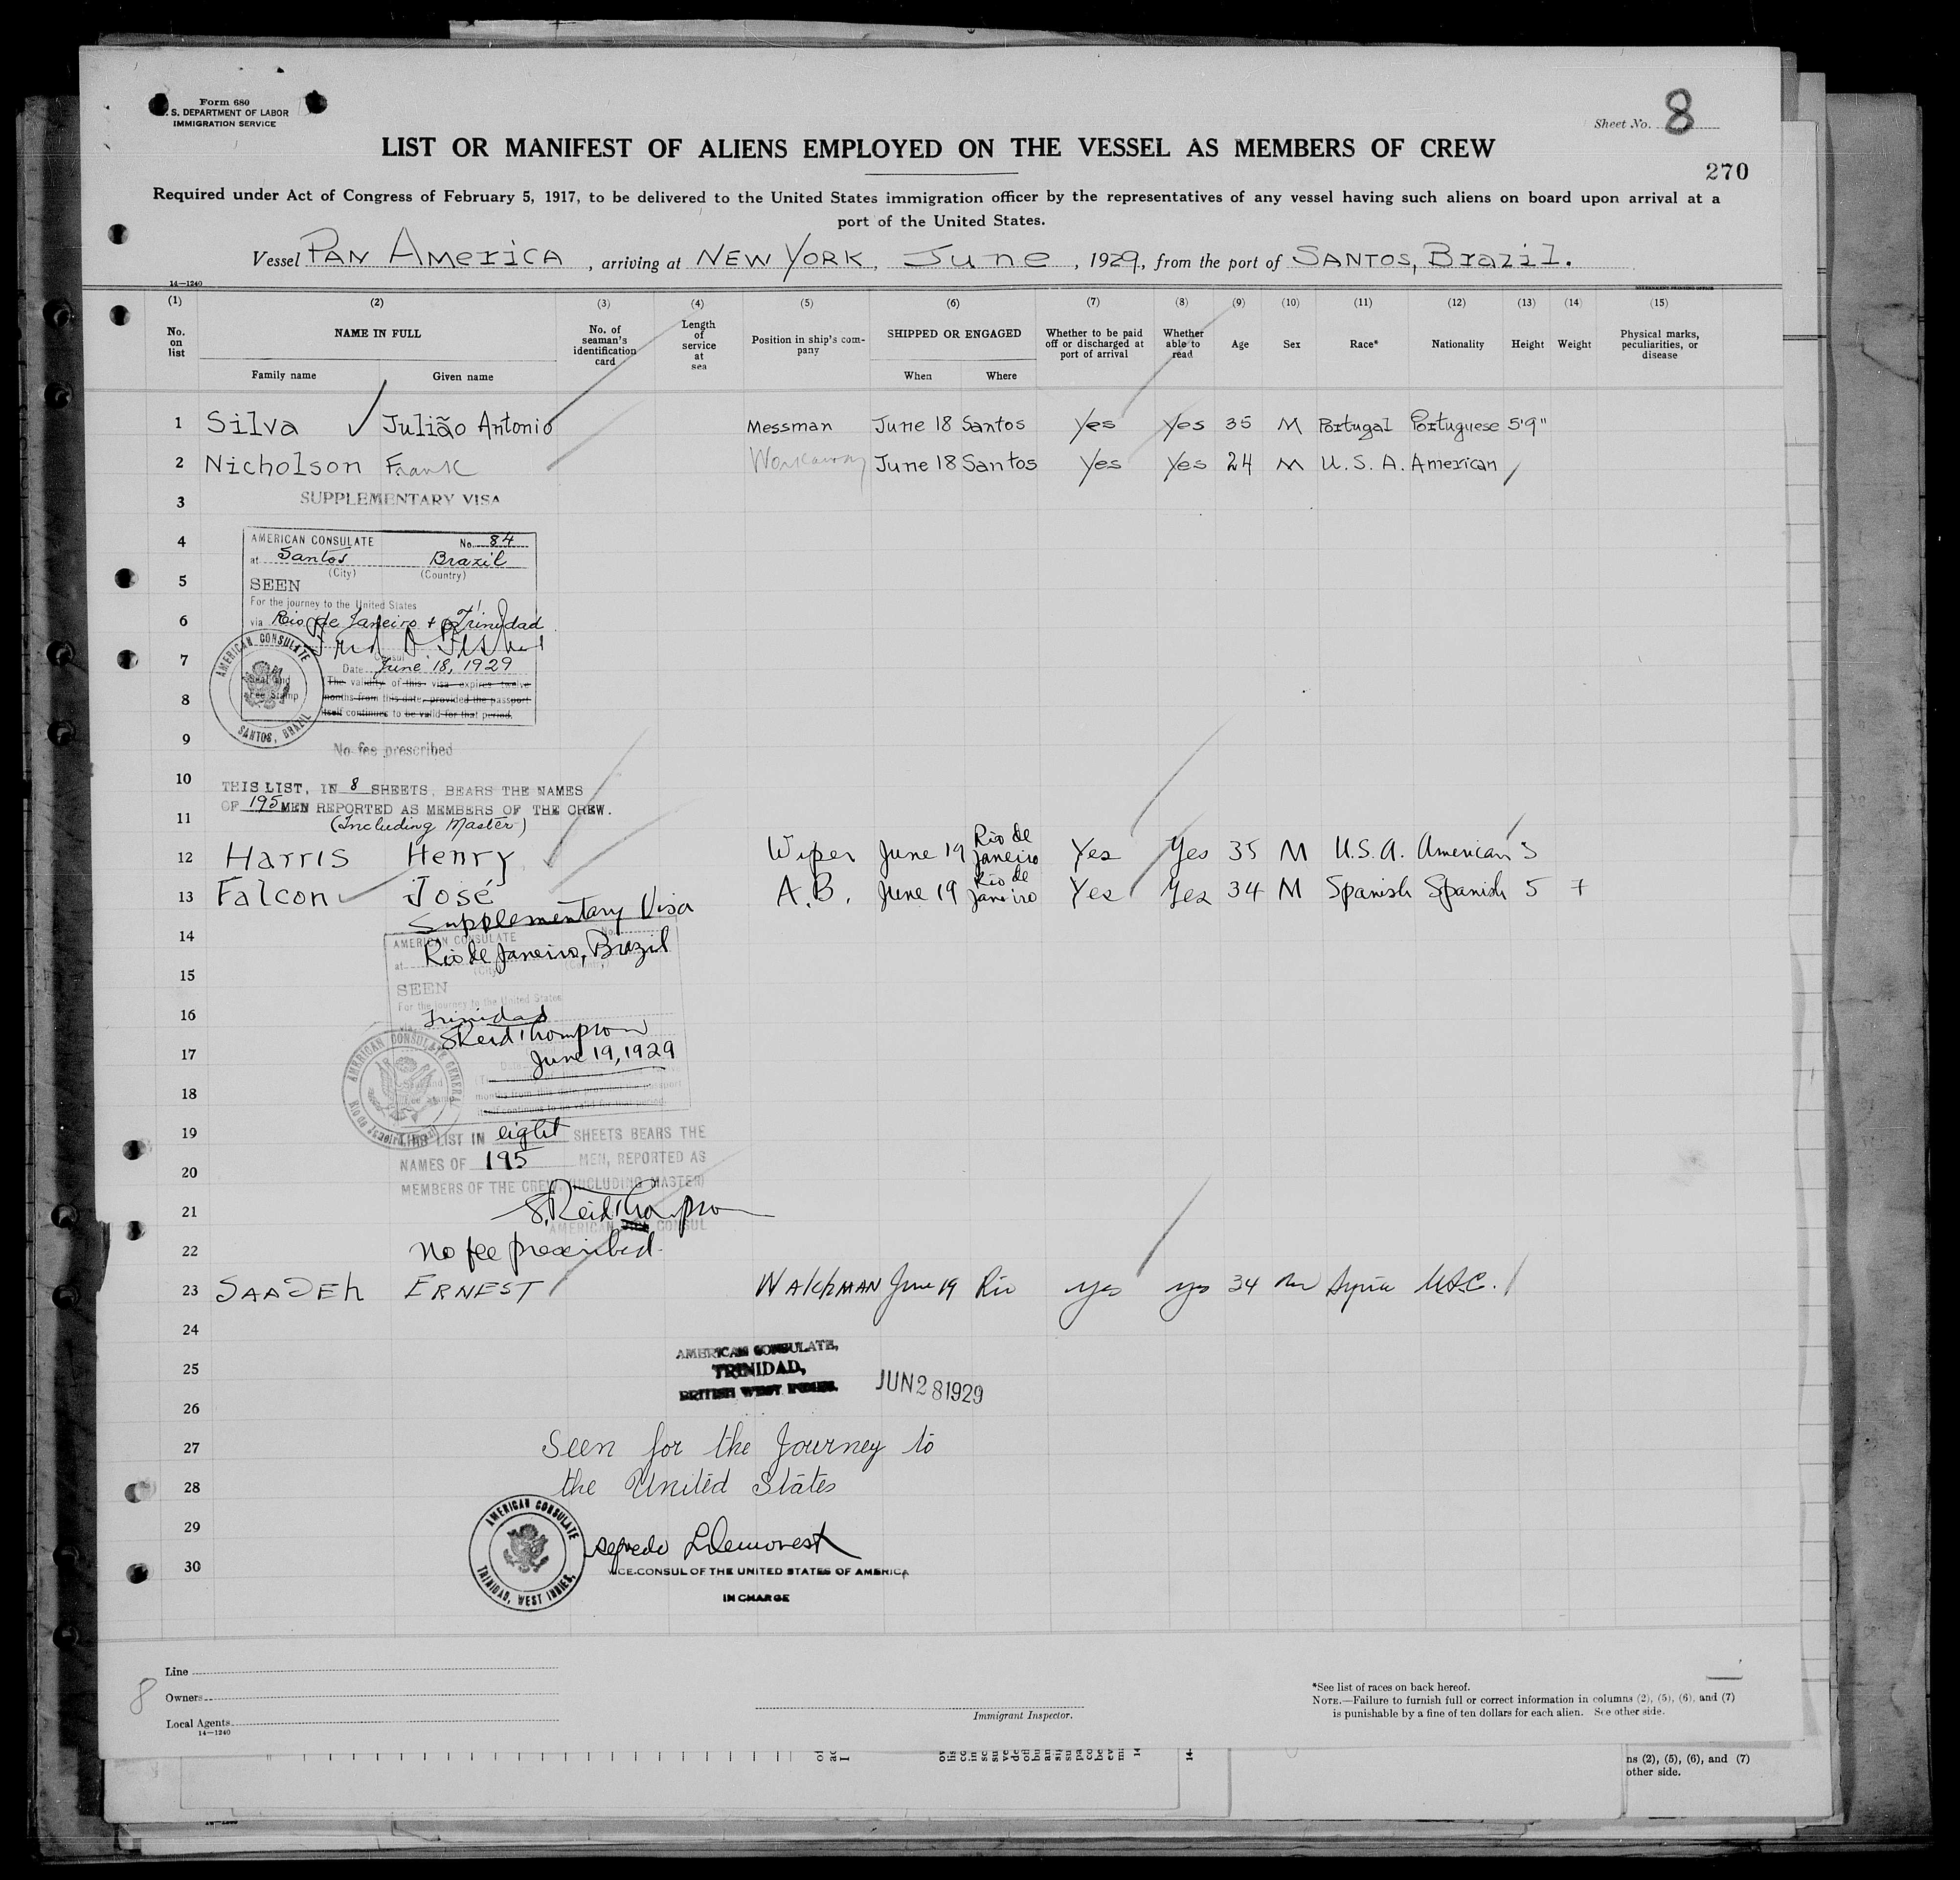 Form 680
U. S. DEPARTMENT OF LABOR
IMMIGRATION SERVICE
Sheet No. 8
LIST OR MANIFEST OF ALIENS EMPLOYED ON THE VESSEL AS MEMBERS OF CREW
270
Required under Act of Congress of February 5, 1917, to be delivered to the United States immigration officer by the representatives of any vessel having such aliens on board upon arrival at a
port of the United States.
Vessel PAN AMERICA, arriving at NEW YORK, June, 1929, from the port of SANTOS, Brazil.
14—1240
(1) (2) (3) (4) (5) (6) (7) (8) (9) (10) (11) (12) (13) (14) (15)
No. on list
NAME IN FULL
Family name Given name
No. of seaman's identification card
Length of service at sea
Position in ship's company
SHIPPED OR ENGAGED
When Where
Whether to be paid off or discharged at port of arrival
Whether able to read
Age
Sex
Race*
Nationality
Height
Weight
Physical marks, peculiarities, or disease
1 Silva Julião Antonio Messman June 18 Santos Yes Yes 35 M Portugal Portuguese 5'9"
2 Nicholson Frank Workaway June 18 Santos Yes Yes 24 M U.S.A. American
3 SUPPLEMENTARY VISA
4 AMERICAN CONSULATE No. 84
at Santos Brazil
(City) (Country)
5 SEEN
For the journey to the United States
6 via Rio de Janeiro + Trinidad
7 Date June 18, 1929
The validity of this visa expires twelve
8 months from this date, provided the passport
itself continues to be valid for that period.
AMERICAN CONSULATE
SANTOS, BRAZIL
9 No fee prescribed
10 THIS LIST, IN 8 SHEETS, BEARS THE NAMES
OF 195 MEN REPORTED AS MEMBERS OF THE CREW.
11 (Including Master)
12 Harris Henry Wiper June 19 Rio de Janeiro Yes Yes 35 M U.S.A. American 5
13 Falcon José A.B. June 19 Rio de Janeiro Yes Yes 34 M Spanish Spanish 5 7
Supplementary Visa
14 AMERICAN CONSULATE No.
at Rio de Janeiro, Brazil
15 SEEN
For the journey to the United States
16 Trinidad
S. Reid Thompson
17 June 19, 1929
18 months from this date, provided the passport
itself continues to be valid for that period.
AMERICAN CONSULATE GENERAL
Rio de Janeiro, Brazil
19 THIS LIST IN eight SHEETS BEARS THE
20 NAMES OF 195 MEN, REPORTED AS
MEMBERS OF THE CREW (INCLUDING MASTER)
21 S. Reid Thompson
AMERICAN VICE CONSUL
22 No fee prescribed.
23 SAADEh ERNEST WAtchMAN June 19 Rio yes yes 34 m Syria U.S.C.
24
AMERICAN CONSULATE,
25 TRINIDAD,
BRITISH WEST INDIES.
JUN 28 1929
26
27 Seen for the Journey to
28 the United States
AMERICAN CONSULATE
TRINIDAD, WEST INDIES.
29 Alfredo L. Demorest
30 VICE-CONSUL OF THE UNITED STATES OF AMERICA
IN CHARGE
Line
8 Owners
Local Agents
14—1240
Immigrant Inspector.
*See list of races on back hereof.
NOTE.—Failure to furnish full or correct information in columns (2), (5), (6), and (7)
is punishable by a fine of ten dollars for each alien. See other side.
ns (2), (5), (6), and (7)
other side.